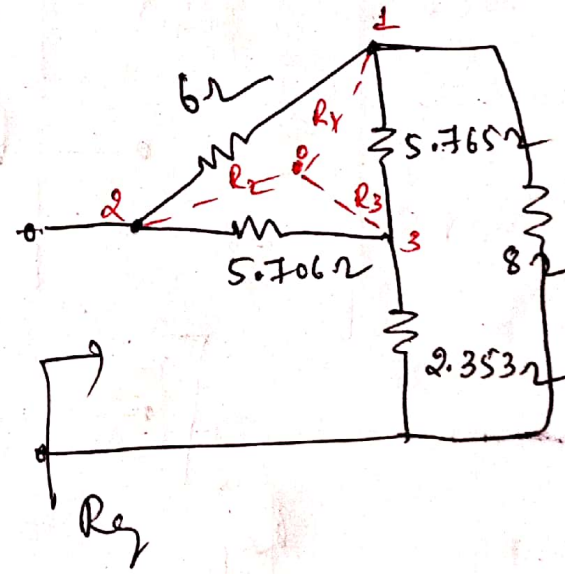 1
6Ω
R1
5.765Ω
R2
R3
2
3
5.706Ω
8Ω
2.353Ω
Req